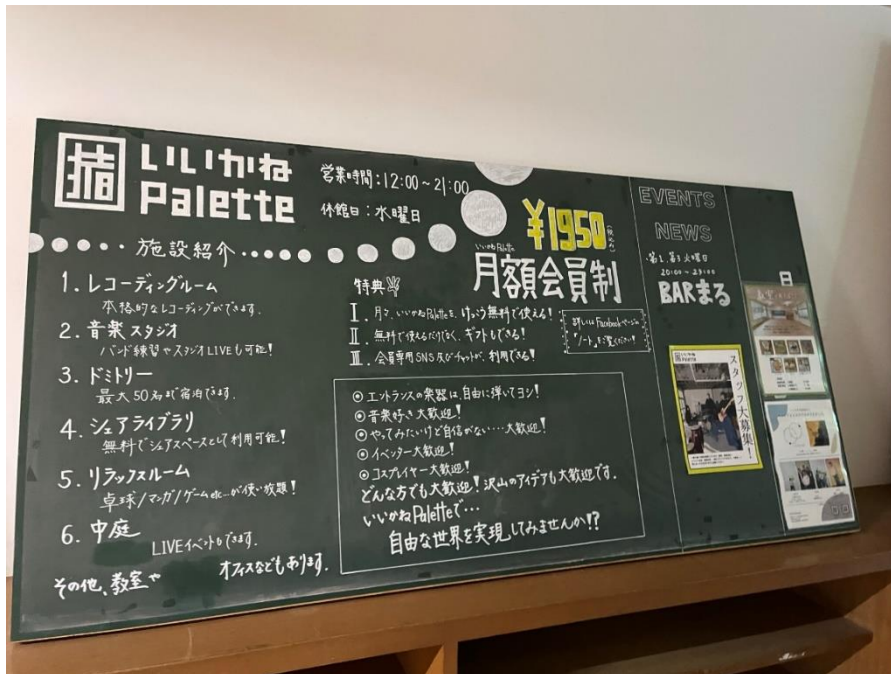 いいかね
Palette
営業時間:12:00~21:00
休館日:水曜日
施設紹介
1. レコーディングルーム
本格的なレコーディングができます.
2. 音楽スタジオ
バンド練習やスタジオLIVEも可能!
3. ドミトリー
最大50名まで宿泊できます.
4. シェアライブラリ
無料でシェアスペースとして利用可能!
5. リラックスルーム
卓球/マンガ/ゲームetc...が使い放題!
6. 中庭
LIVEイベントもできます.
その他、教室や
オフィスなどもあります.
¥1950
(税込み)
いいかねPalette
月額会員制
特典
I. 月々、いいかねPaletteを、けっこう無料で使える!
II. 無料で使えるだけでなく、ギフトもできる!
III. 会員専用SNS及びチャットが、利用できる!
詳しくはFacebookページの
「ノート」をご覧ください!
◎エントランスの楽器は、自由に弾いてヨシ!
◎音楽好き大歓迎!
◎やってみたいけど自信がない…大歓迎!
◎イベンター大歓迎!
◎コスプレイヤー大歓迎!
どんな方でも大歓迎!沢山のアイデアも大歓迎です.
いいかねPaletteで…
自由な世界を実現してみませんか!?
EVENTS
NEWS
・第1、第3火曜日
20:00~23:00
BARまる
いいかね
Palette
スタッフ大募集!
日